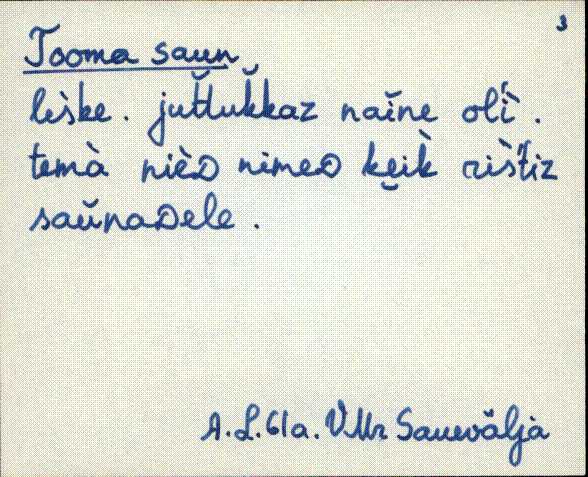 3
Tooma saun
lèske. jut̆luk̆kaz naĭne olì̀.
temà nièD nimeD kẹik̀ ris̀tiz
saŭnaDele.
A.L. 61a. VMr Sauevälja